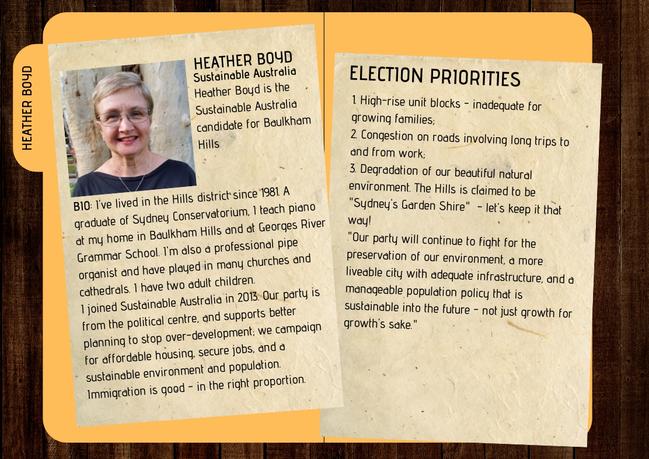 HEATHER BOYD
HEATHER BOYD
Sustainable Australia
Heather Boyd is the
Sustainable Australia
candidate for Baulkham
Hills
BIO: I've lived in the Hills district since 1981. A
graduate of Sydney Conservatorium, I teach piano
at my home in Baulkham Hills and at Georges River
Grammar School. I'm also a professional pipe
organist and have played in many churches and
cathedrals. I have two adult children.
I joined Sustainable Australia in 2013. Our party is
from the political centre, and supports better
planning to stop over-development; we campaign
for affordable housing, secure jobs, and a
sustainable environment and population.
Immigration is good - in the right proportion.
ELECTION PRIORITIES
1. High-rise unit blocks - inadequate for
growing families;
2. Congestion on roads involving long trips to
and from work;
3. Degradation of our beautiful natural
environment. The Hills is claimed to be
"Sydney's Garden Shire" - let's keep it that
way!
"Our party will continue to fight for the
preservation of our environment, a more
liveable city with adequate infrastructure, and a
manageable population policy that is
sustainable into the future - not just growth for
growth's sake."